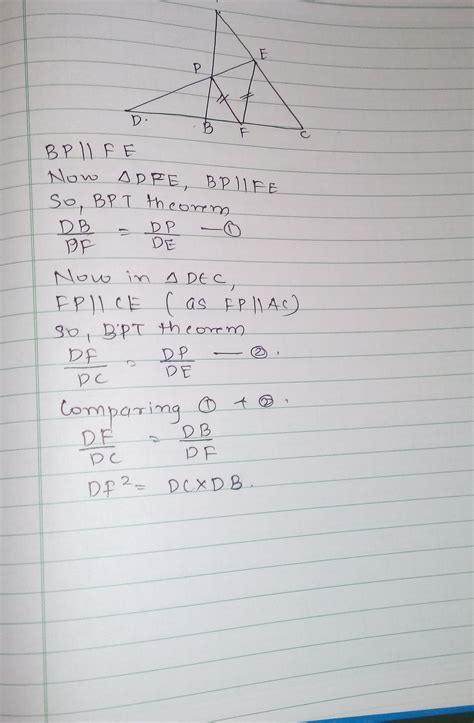 E
P
D.
B
F
C
BP || FE
Now ΔDFE, BP || FE
So, BPT theorem
DB/BF = DP/DE — ①
Now in ΔDEC,
FP || CE ( as FP || AC)
So, BPT theorem
DF/DC = DP/DE — ②.
Comparing ① + ②.
DF/DC = DB/DF
DF² = DC×DB.